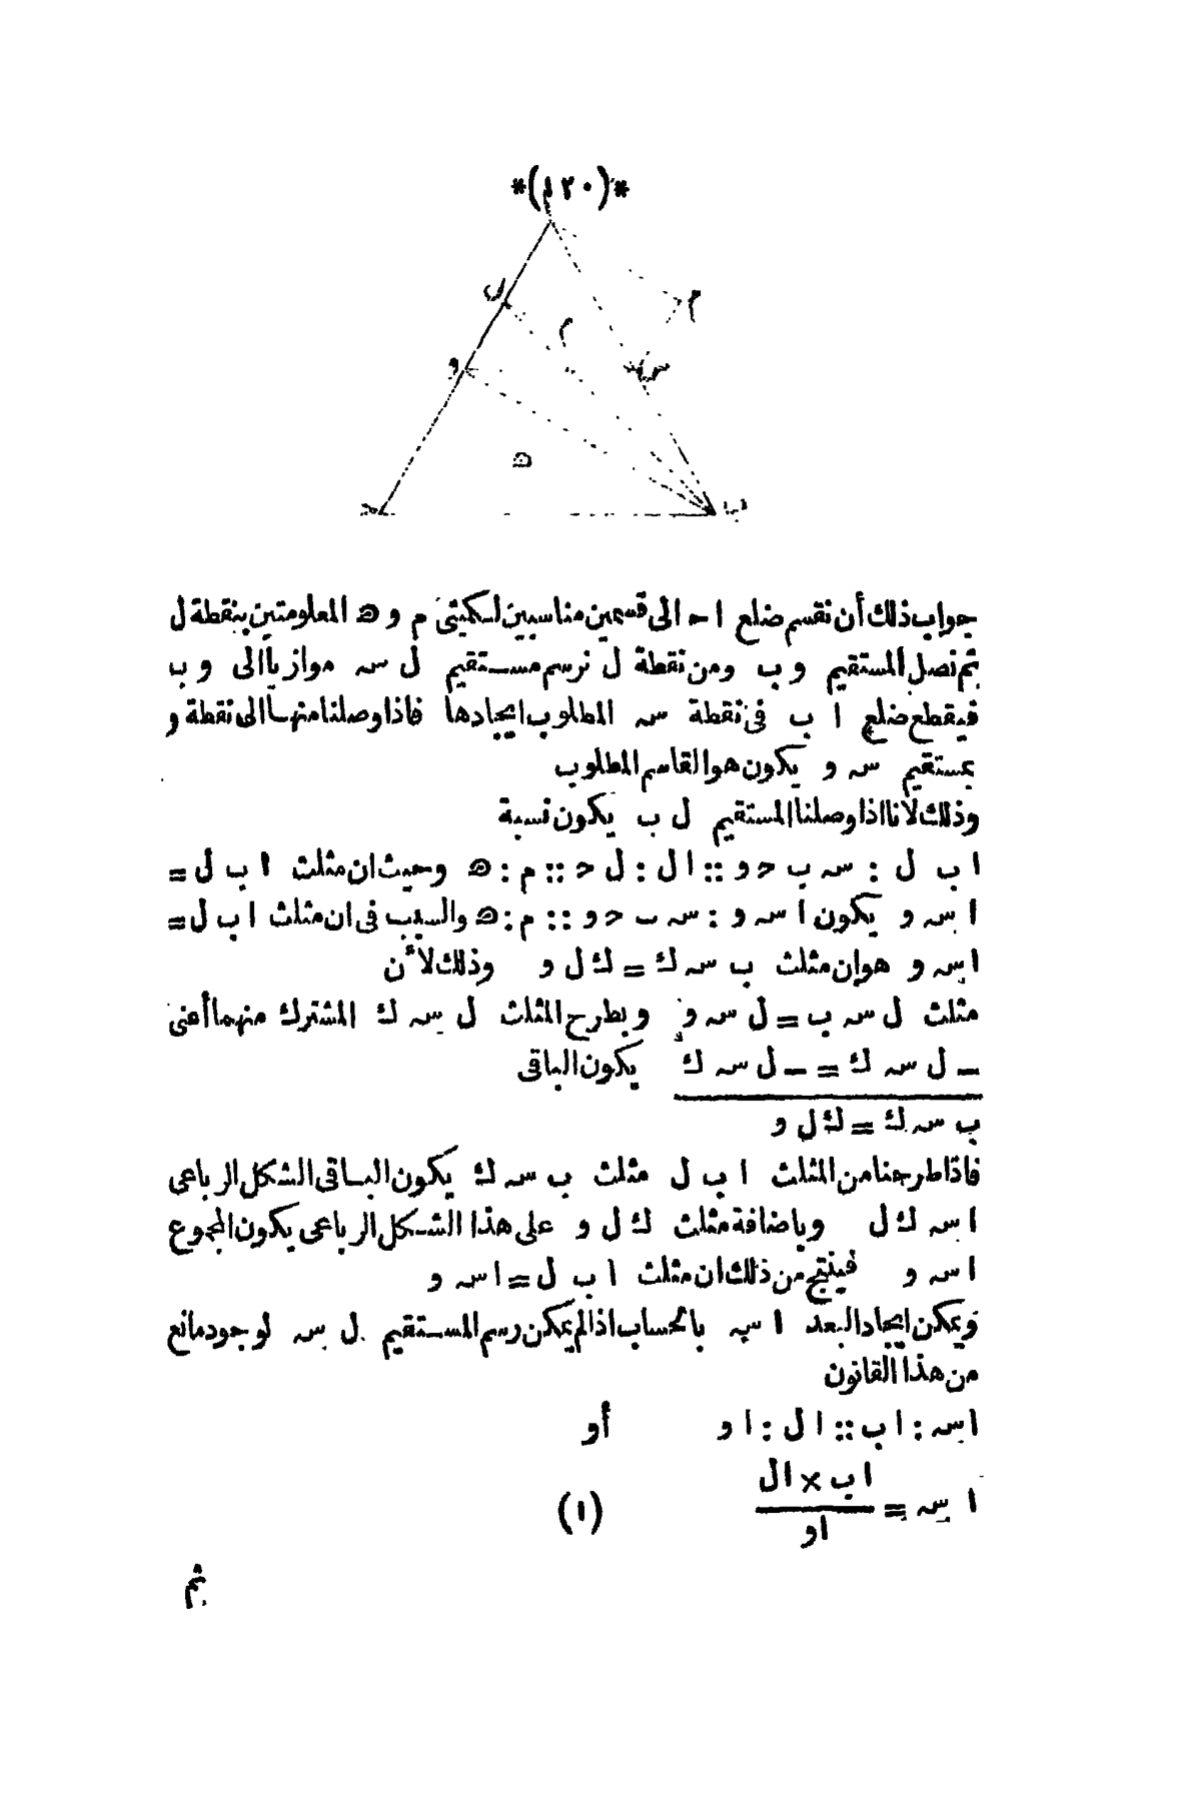 *(١٢٠)*
ا
ل
م
م
و
سه
ه
ح
ب
جواب ذلك أن نقسم ضلع ا ح الى قسمين مناسبين لكميتى م و ه المعلومتين بنقطة ل
ثم نصل المستقيم و ب ومن نقطة ل نرسم مستقيم ل سه موازيا الى و ب
فيقطع ضلع ا ب فى نقطة سه المطلوب ايجادها فاذا وصلنا منها الى نقطة و
بمستقيم سه و يكون هو القاسم المطلوب
وذلك لاننا اذا وصلنا المستقيم ل ب يكون نسبة
ا ب ل : سه ب ح و :: ا ل : ل ح :: م : ه وحيث ان مثلث ا ب ل =
ا سه و يكون ا سه و : سه ب ح و :: م : ه والسبب فى ان مثلث ا ب ل =
ا سه و هو ان مثلث ب سه ك = ك ل و وذلك لأن
مثلث ل سه ب = ل سه و وبطرح المثلث ل سه ك المشترك منهما أعنى
— ل سه ك = — ل سه ك يكون الباقى
ب سه ك = ك ل و
فاذا طرحنا من المثلث ا ب ل مثلث ب سه ك يكون الباقى الشكل الرباعى
ا سه ك ل وباضافة مثلث ك ل و على هذا الشكل الرباعى يكون المجموع
ا سه و فينتج من ذلك ان مثلث ا ب ل = ا سه و
ويمكن ايجاد البعد ا سه بالحساب اذا لم يمكن رسم المستقيم ل سه لوجود مانع
من هذا القانون
ا سه : ا ب :: ا ل : ا و أو
ا سه = ا ب × ا ل / ا و (١)
ثم